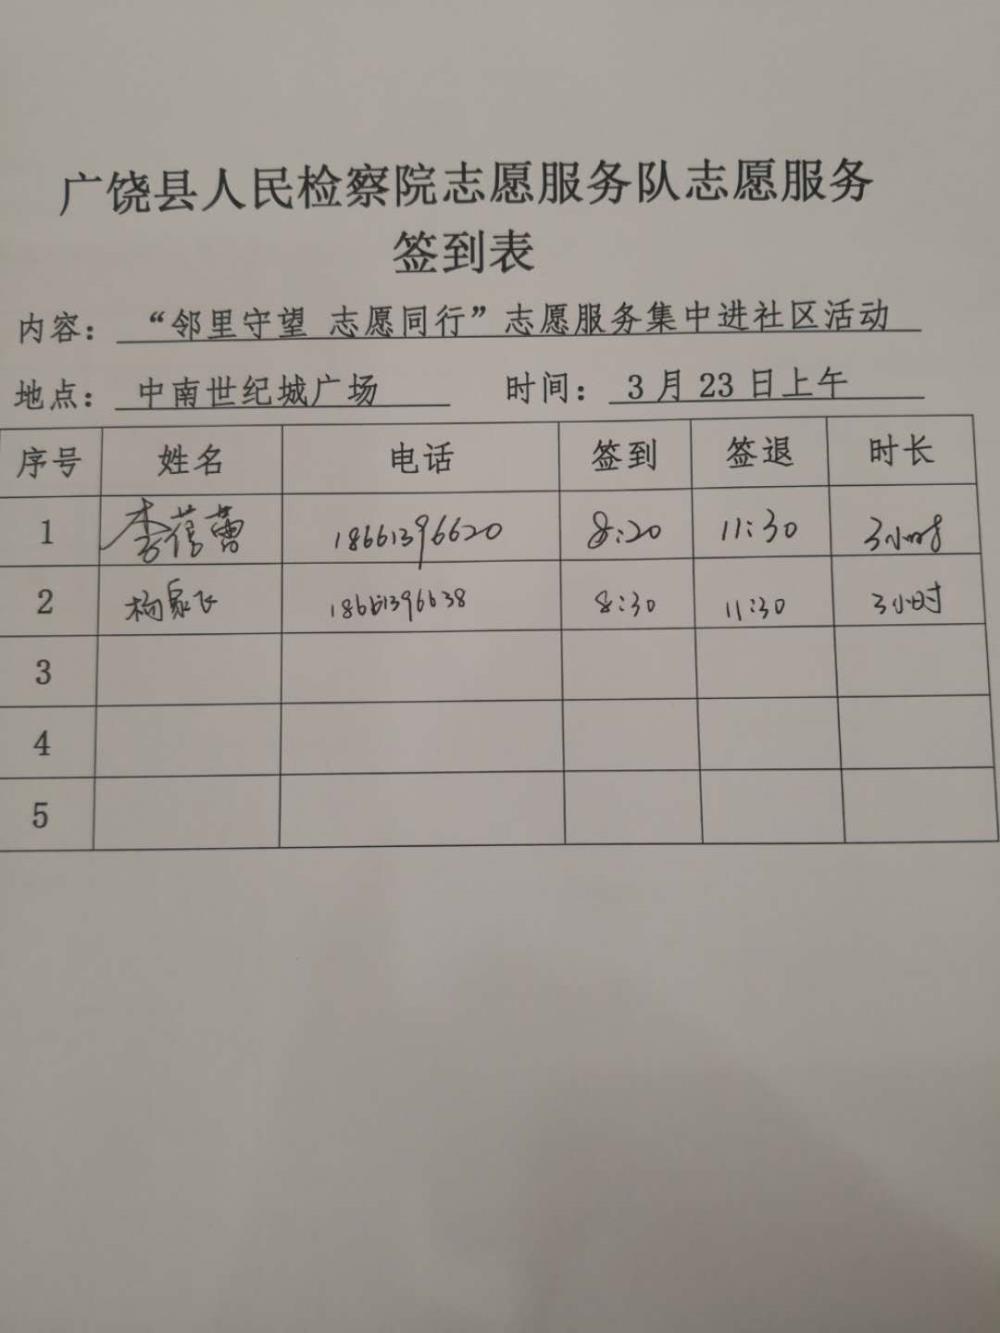 广饶县人民检察院志愿服务队志愿服务
签到表
内容：“邻里守望 志愿同行”志愿服务集中进社区活动
地点：中南世纪城广场 时间：3月23日上午
序号 姓名 电话 签到 签退 时长
1 李蓓蕾 18661396620 8:20 11:30 3小时
2 杨家飞 18661396638 8:30 11:30 3小时
3
4
5